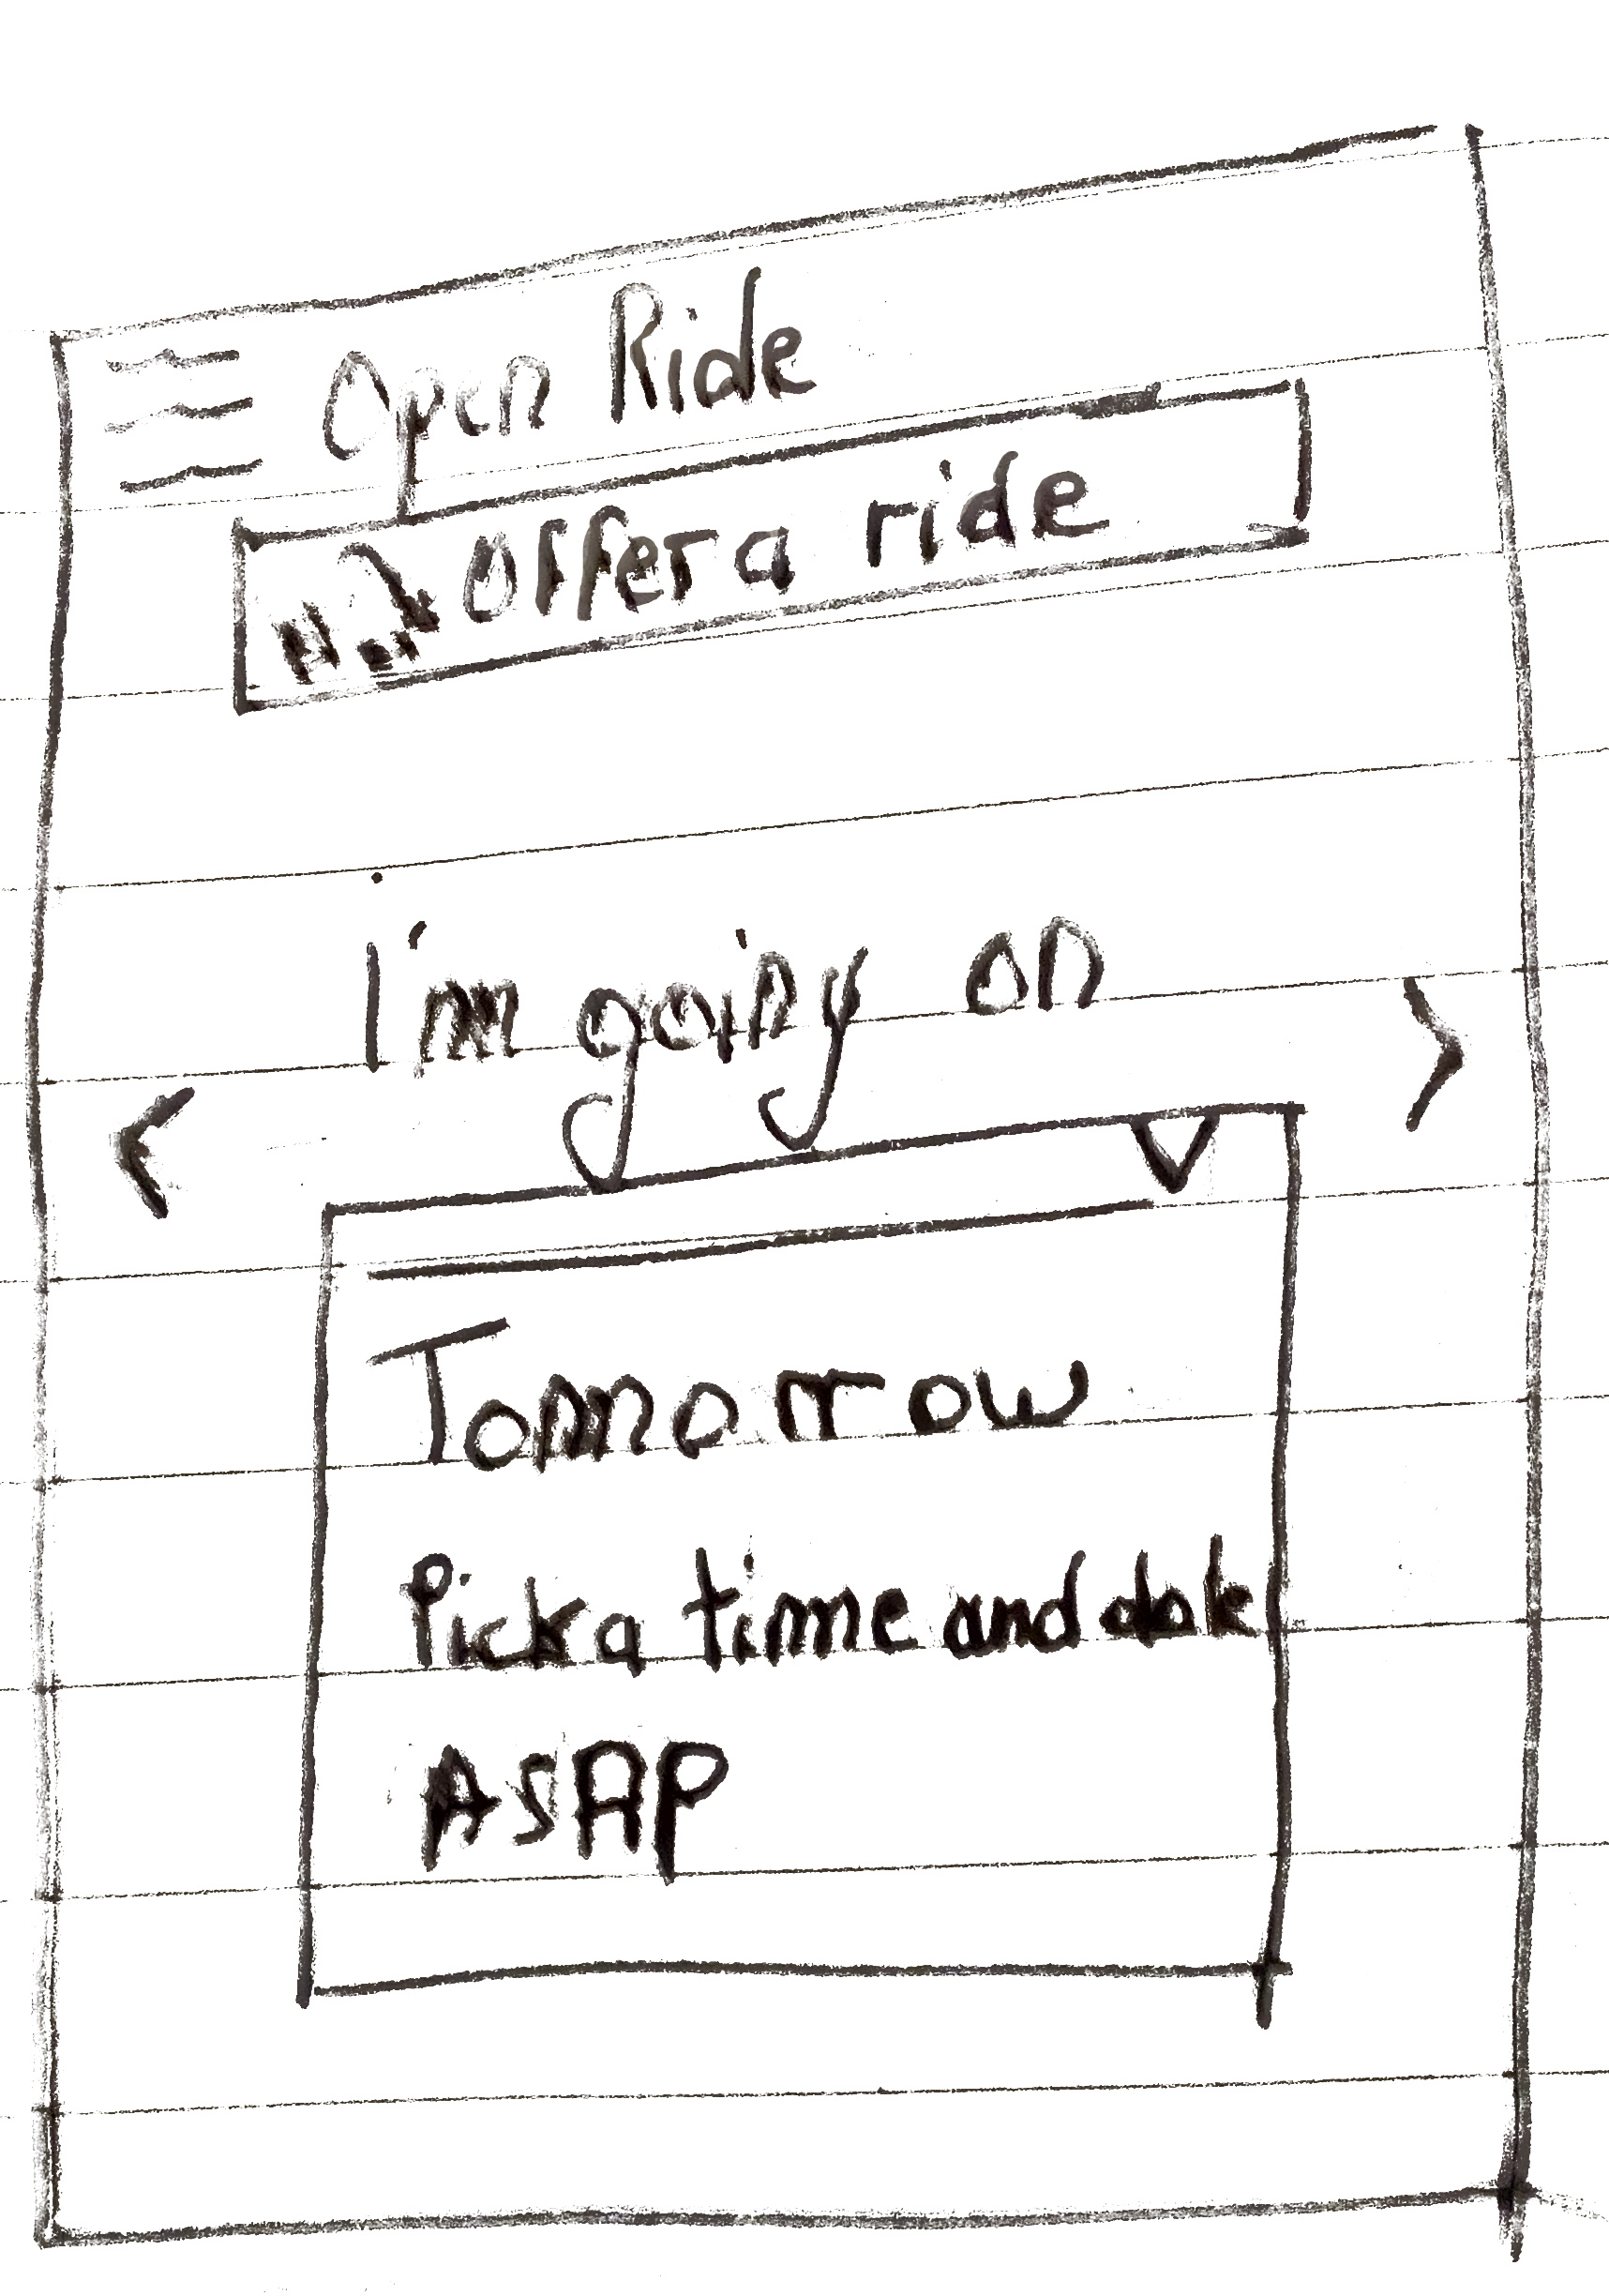 Open Ride
Offer a ride
I'm going on
Tomorrow
Pick a time and date
ASAP